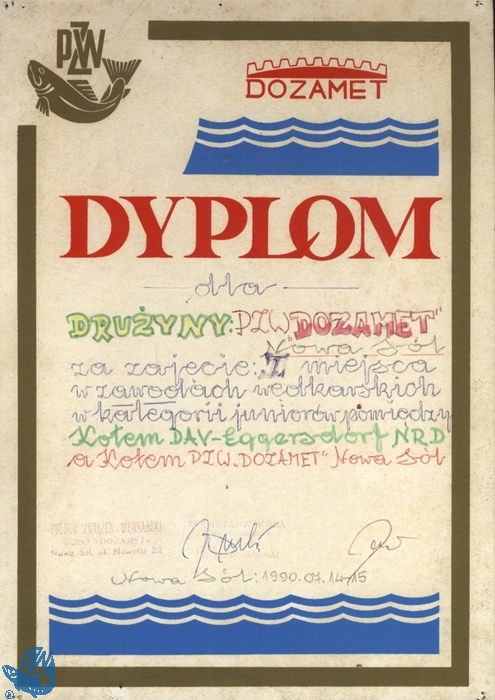 PZW
DOZAMET
DYPLOM
dla
DRUŻYNY: PZW "DOZAMET"
Nowa Sól
za zajęcie: I miejsca
w zawodach wędkarskich
w kategorii juniorów powiędzy
Kołem DAV-Eggersdorf NRD
a Kołem PZW "DOZAMET" Nowa Sól
POLSKI ZWIĄZEK WĘDKARSKI
KOŁO "DOZAMET"
Nowa Sól, pl.
Nowa Sól: 1990.07.14-15
PZW